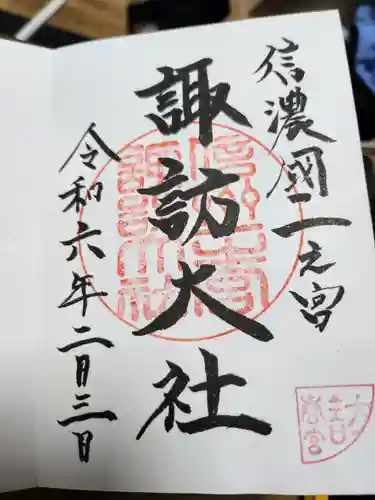 信濃國一之宮
諏訪大社
令和六年二月三日